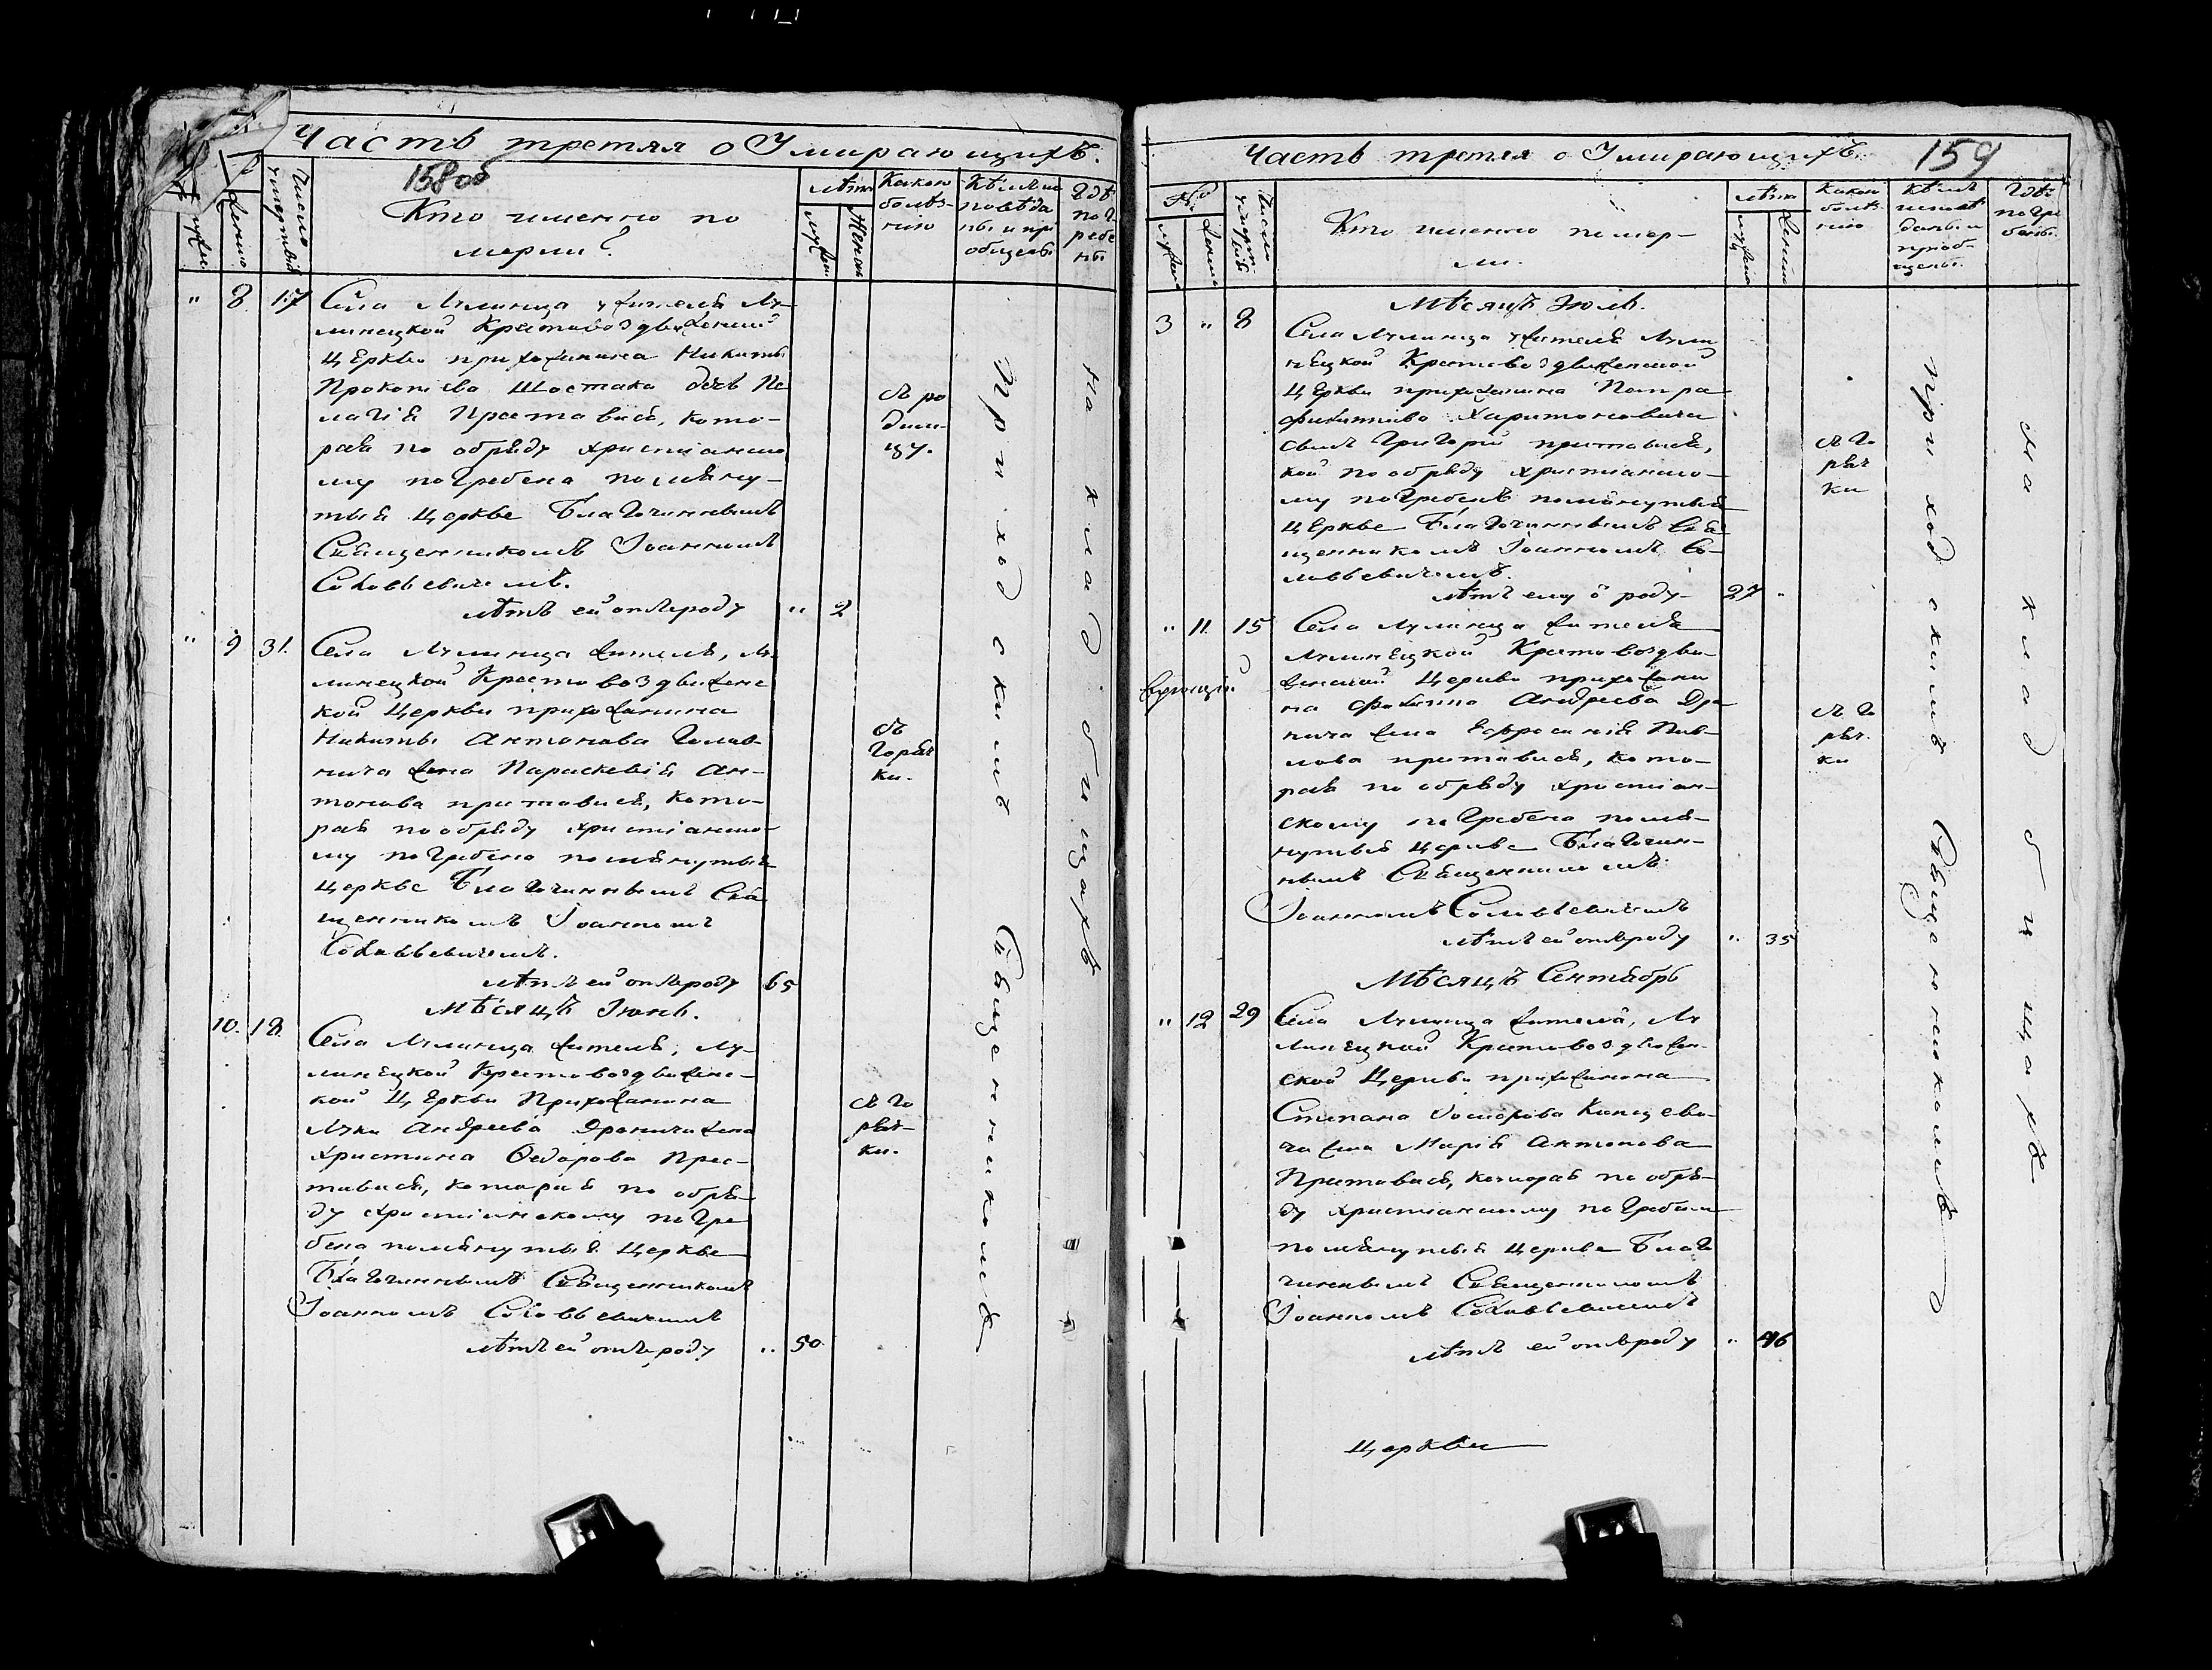 Часть третяя о Умирающихъ.
158об
Число умертвій
Кто именно по
мерли?
лѣта
Какою
болѣз-
нію
Кѣмъ ис
повѣда
ны и прі
общены
Гдѣ
погребе
ны
" 8 17 Села Лулинца жителя Лу-
линецкой Крестовоздвиженской
Церкви прихожанина Никиты
Прокопіева Шостака дочь Пе
лагія Преставися, кото-
рая по обряду христіанско
му погребена помяну-
тыя Церкве Благочиннымъ
Священникомъ Іоанномъ
Соловьевичемъ.
лѣтъ ей отъ роду " 2
съ ро
дим-
цу.
" 9 31. Села Лулинца жителя, Лу-
линецкой Крестовоздвиженс
кой Церкви прихожанина
Никиты Антонова Голов-
нича жена Параскевія Ан-
тонова преставися, кото-
рая по обряду христіанско-
му погребена помянутыя
Церкве Благочиннымъ Свя
щенникомъ Іоанномъ
Соловьевичемъ.
лѣтъ ей отъ роду 65
съ
горяч
ки.
Мѣсяцъ Іюнь.
10. 18. Села Лулинца жителя, Лу-
линецкой Крестовоздвиженс-
кой Церкви Прихожанина
Луки Андреева Драпича жена
Христина Ѳедорова Прес-
тавися, которая по обря-
ду христіанскому погре
бена помянутыя Церкве
Благочиннымъ Священникомъ
Іоанномъ Соловьевичемъ
лѣтъ ей отъ роду " 50.
съ го
ряч-
ки.
Приходскимъ Священникомъ
На кладбищахъ
Часть третяя о Умирающихъ. 159
№
Кто именно помер-
ли.
лѣта
Какою
болѣз-
нію
Кѣмъ
исповѣ
даны и
приоб-
щены.
Гдѣ
погре
бены.
Мѣсяцъ Іюль.
3 " 8 Села Лулинца жителя Лули
нецкой Крестовоздвиженской
Церкви прихожанина Петра
Филиппова Харитоновича
сынъ Григорій преставися,
кой по обряду христіанско-
му погребенъ помянутыя
Церкве Благочиннымъ Свя
щенникомъ Іоанномъ Со-
ловьевичемъ.
лѣтъ ему о роду 27
съ го
ряч
ки
" 11. 15 Села Лулинца жителя
Лулинецкой Крестовоздви-
женской Церкви прихожани
на Филиппа Андреева Дра
пича жена Евфросинія Пав-
лова преставися, кото-
рая по обряду христіан-
скому погребена помя-
нутыя Церкве Благочин-
нымъ Священникомъ
Іоанномъ Соловьевичемъ
лѣтъ ей отъ роду " 35
съ го
ряч.
ки
Мѣсяцъ Сентябрь
" 12 29 Села Лулинца жителя, Лу
линецкой Крестовоздвижен-
ской Церкви прихожанина
Степана
ча жена Марія Антонова
Преставися, которая по обря-
ду христіанскому погребена
помянутыя Церкве Благо
чиннымъ Священникомъ
Іоанномъ Соловьевичемъ
лѣтъ ей отъ роду " 46
Церкви
приходскимъ Священникомъ
На кладбищахъ